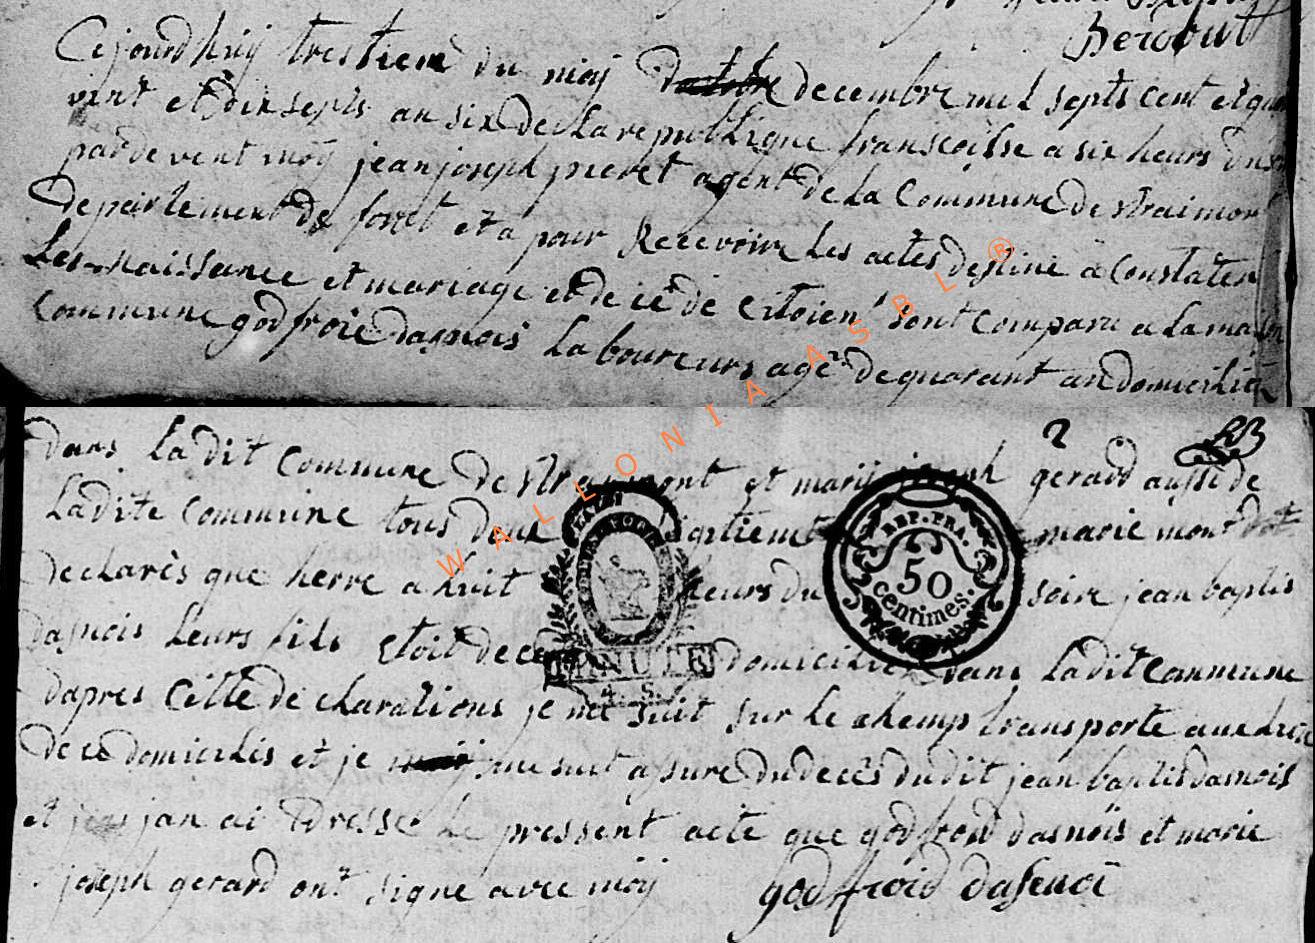 Berout
Cejourdhuij trestieme du moij doctobre decembre mil septs cent et qua
vint et dix septs an six de La republique francoisse a six heurs du
pardevent moij jean joseph pieret agent de La Commune de Wraimont
departement de foret et a pour Recevoir Les actes destiné a Constater
Les naissance et mariage et de ces de Citoien sont comparu a La maison
Commune godfroie dasnois Laboureurs agé de quarant an domicilié
dans Ladit Commune de Wraimont et marij joseph gerard aussi de
Ladite Commune tous deux marie mont
declarès que herre a huit heurs du soire jean baptis
dasnois Leurs fils Etoit decedé domicilié dans Ladit Commune
dapres Cille declarations je me suit sur Le chemp transporte au
de ce domicilis et je me suit assure du deces dudit jean baptis dasnois
et jan ai Edresse Le pressent acte que godfroid dasnois et marie
joseph gerard ont signe avec moij godfroid dasenoi
REP. FRA.
50
centimes.
MINUTE
4. S.
WALLONIA ASBL ®